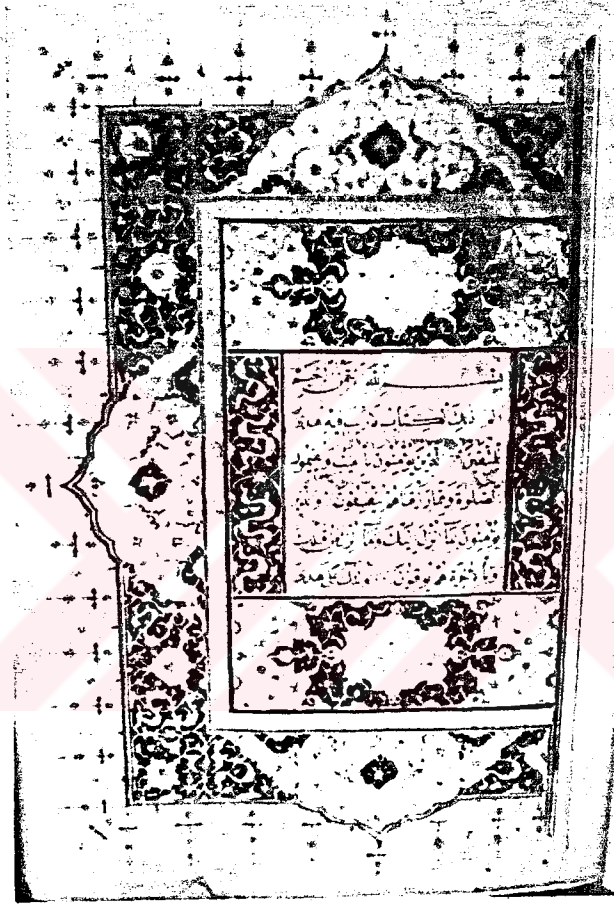 بسم الله الرحمن الرحيم
الم ذلك الكتاب لا ريب فيه هدى
للمتقين الذين يؤمنون بالغيب ويقيمون
الصلوة ومما رزقناهم ينفقون والذين
يؤمنون بما انزل اليك وما انزل من قبلك
وبالاخرة هم يوقنون اولئك على هدى